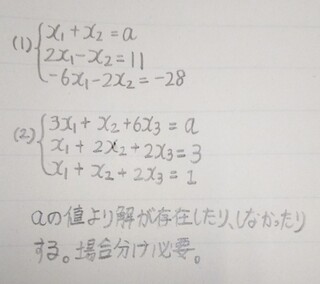 (1) { x₁ + x₂ = a
2x₁ - x₂ = 11
-6x₁ - 2x₂ = -28
(2) { 3x₁ + x₂ + 6x₃ = a
x₁ + 2x₂ + 2x₃ = 3
x₁ + x₂ + 2x₃ = 1
aの値より解が存在したり、しなかったり
する。場合分け必要。